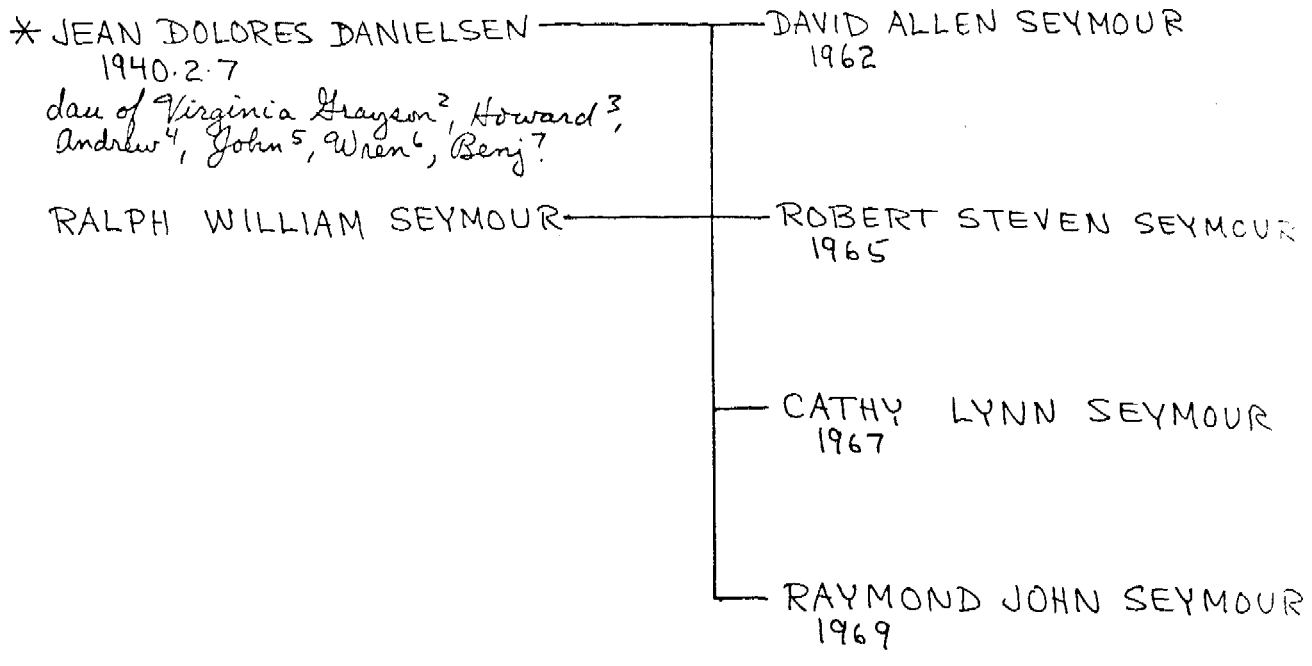 * JEAN DOLORES DANIELSEN
1940.2.7
dau of Virginia Grayson², Howard³,
Andrew⁴, John⁵, Wren⁶, Benj⁷
RALPH WILLIAM SEYMOUR
DAVID ALLEN SEYMOUR
1962
ROBERT STEVEN SEYMOUR
1965
CATHY LYNN SEYMOUR
1967
RAYMOND JOHN SEYMOUR
1969